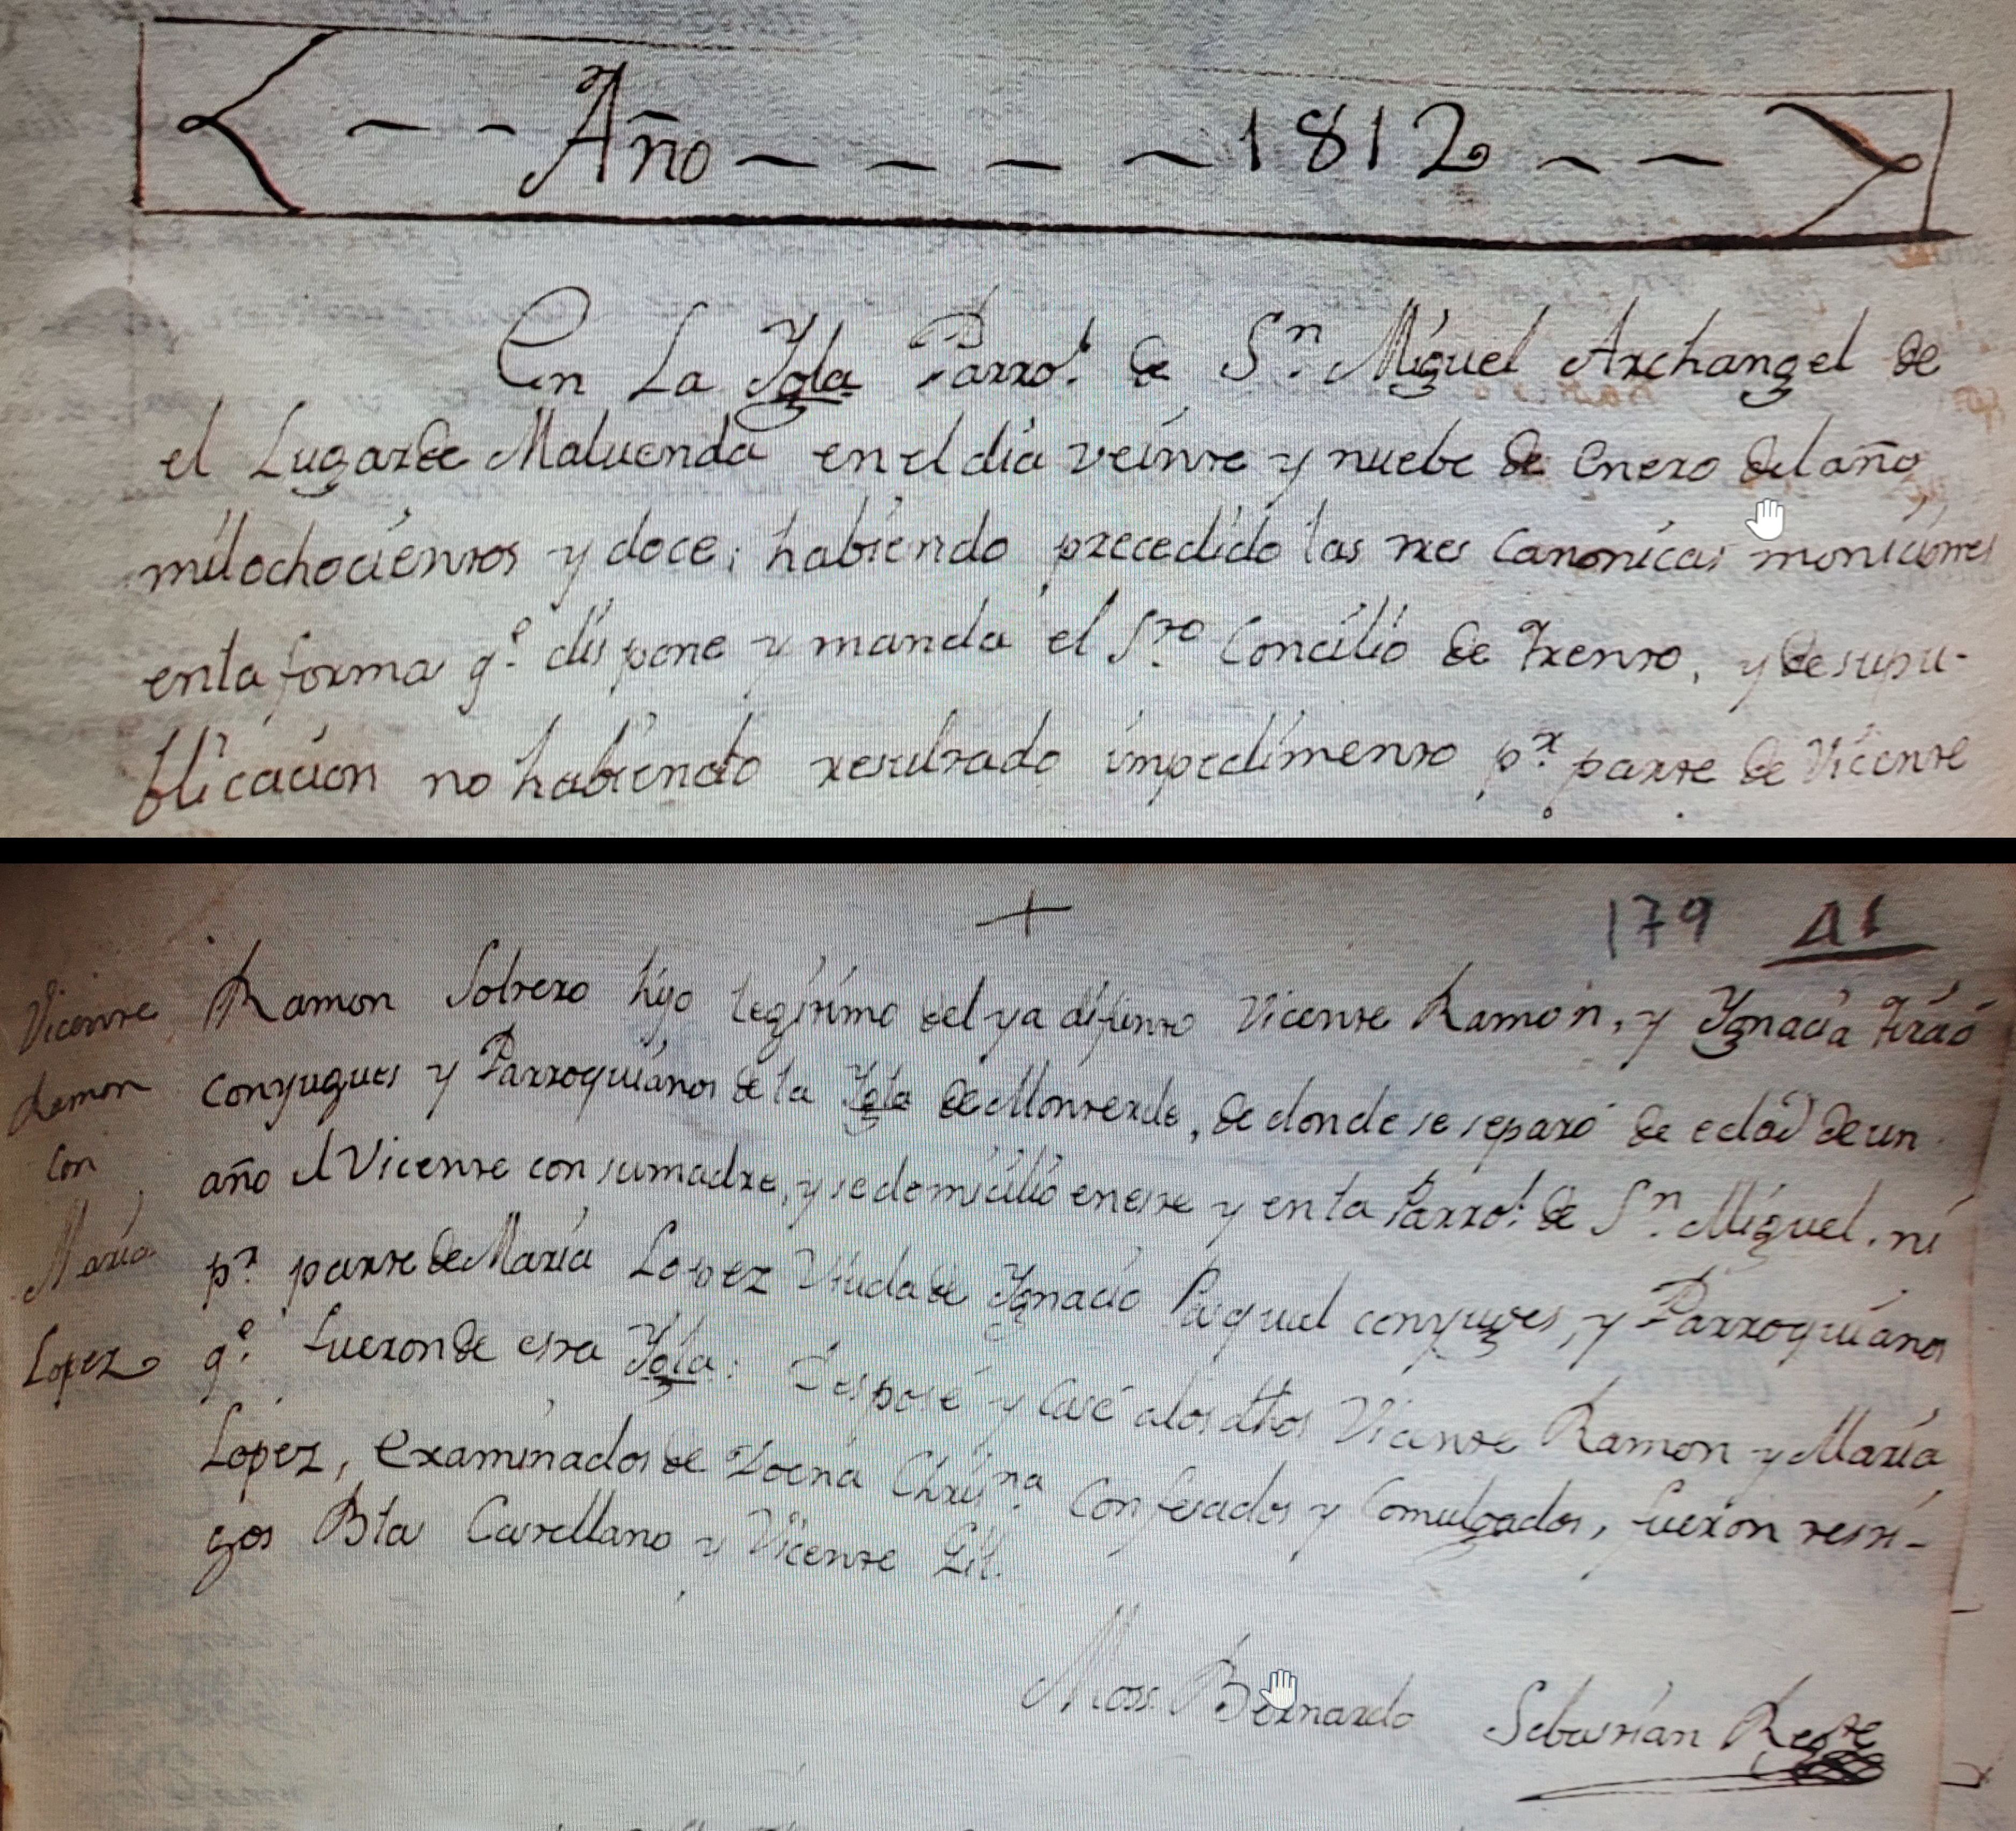 Año 1812
En La Ygla Parrol. de Sn. Miguel Archangel de
el Lugar de Maluenda en el dia veinte y nuebe de Enero del año
mil ochocientos y doce; habiendo precedido las tres Canonicas moniciones
en la forma qe. dispone y manda el Sto. Concilio de Trento, y de su pu-
blicacion no habiendo resultado impedimento pr. parte de Vicente
179
Vicente
Ramon
con
Maria
Lopez
Ramon Soltero hijo legitimo del ya difunto Vicente Ramon, y Ygnacia Tirao
Conyugues y Parroquianos de la Ygla de Monterde, de donde se separó de edad de un
año el Vicente con su madre, y se domicilió en este y en la Parrol. de Sn. Miguel, ni
pr. parte de Maria Lopez Viuda de Ygnacio Pasqual conyuges, y Parroquianos
qe. fueron de esta Ygla: Desposé y Casé a los dhos Vicente Ramon y Maria
Lopez, Examinados de Doctna Christna. Confesados y Comulgados, fueron testi-
gos Bta Castellano y Vicente Gil.
Moss. Bernardo Sebastian Regte